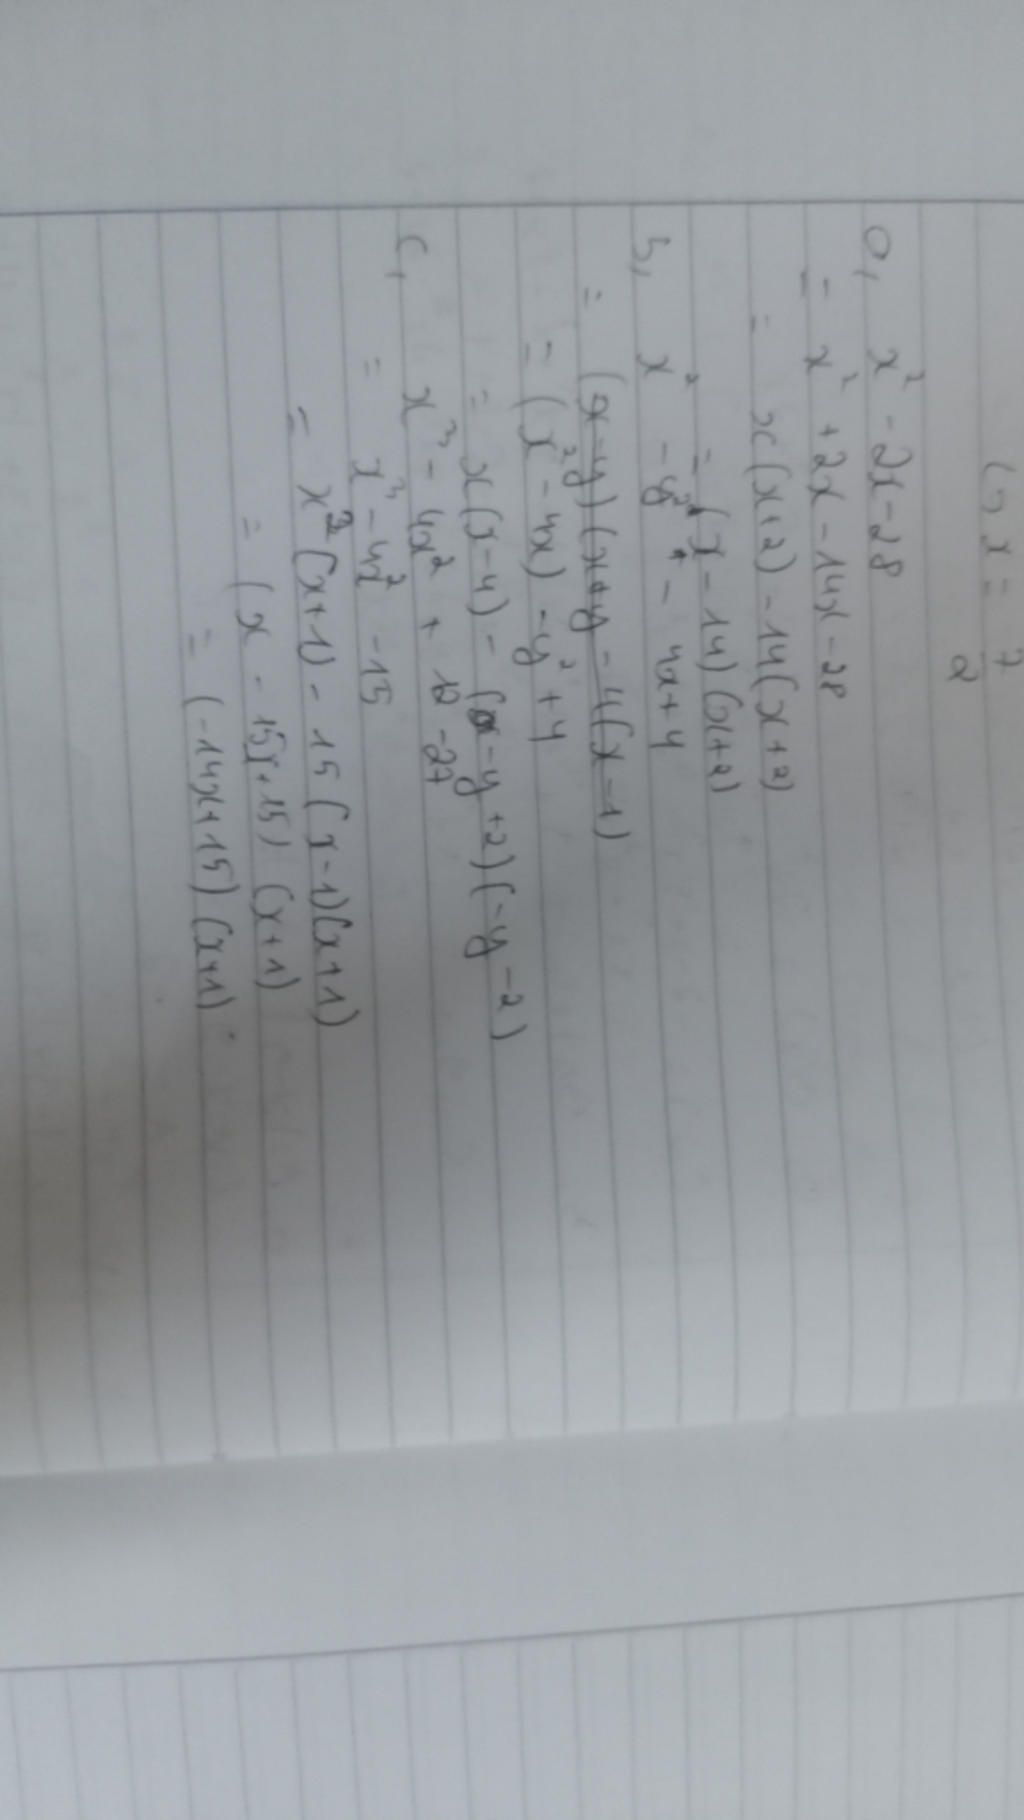 x = 7/2
a, x² - 2x - 28
= x² + 2x - 14x - 28
= x(x+2) - 14(x+2)
= (x - 14)(x+2)
b, x² - y² - 4x + 4
= (x-y)(x+y - 4(x-1)
= (x² - 4x) - y² + 4
= x(x-4) - (-y+2)(-y-2)
c, x³ - 4x² + 12 - 27
= x³ - 4x² - 15
= x²(x+1) - 15(x-1)(x+1)
= (x - 15x+15)(x+1)
= (-14x+15)(x+1).